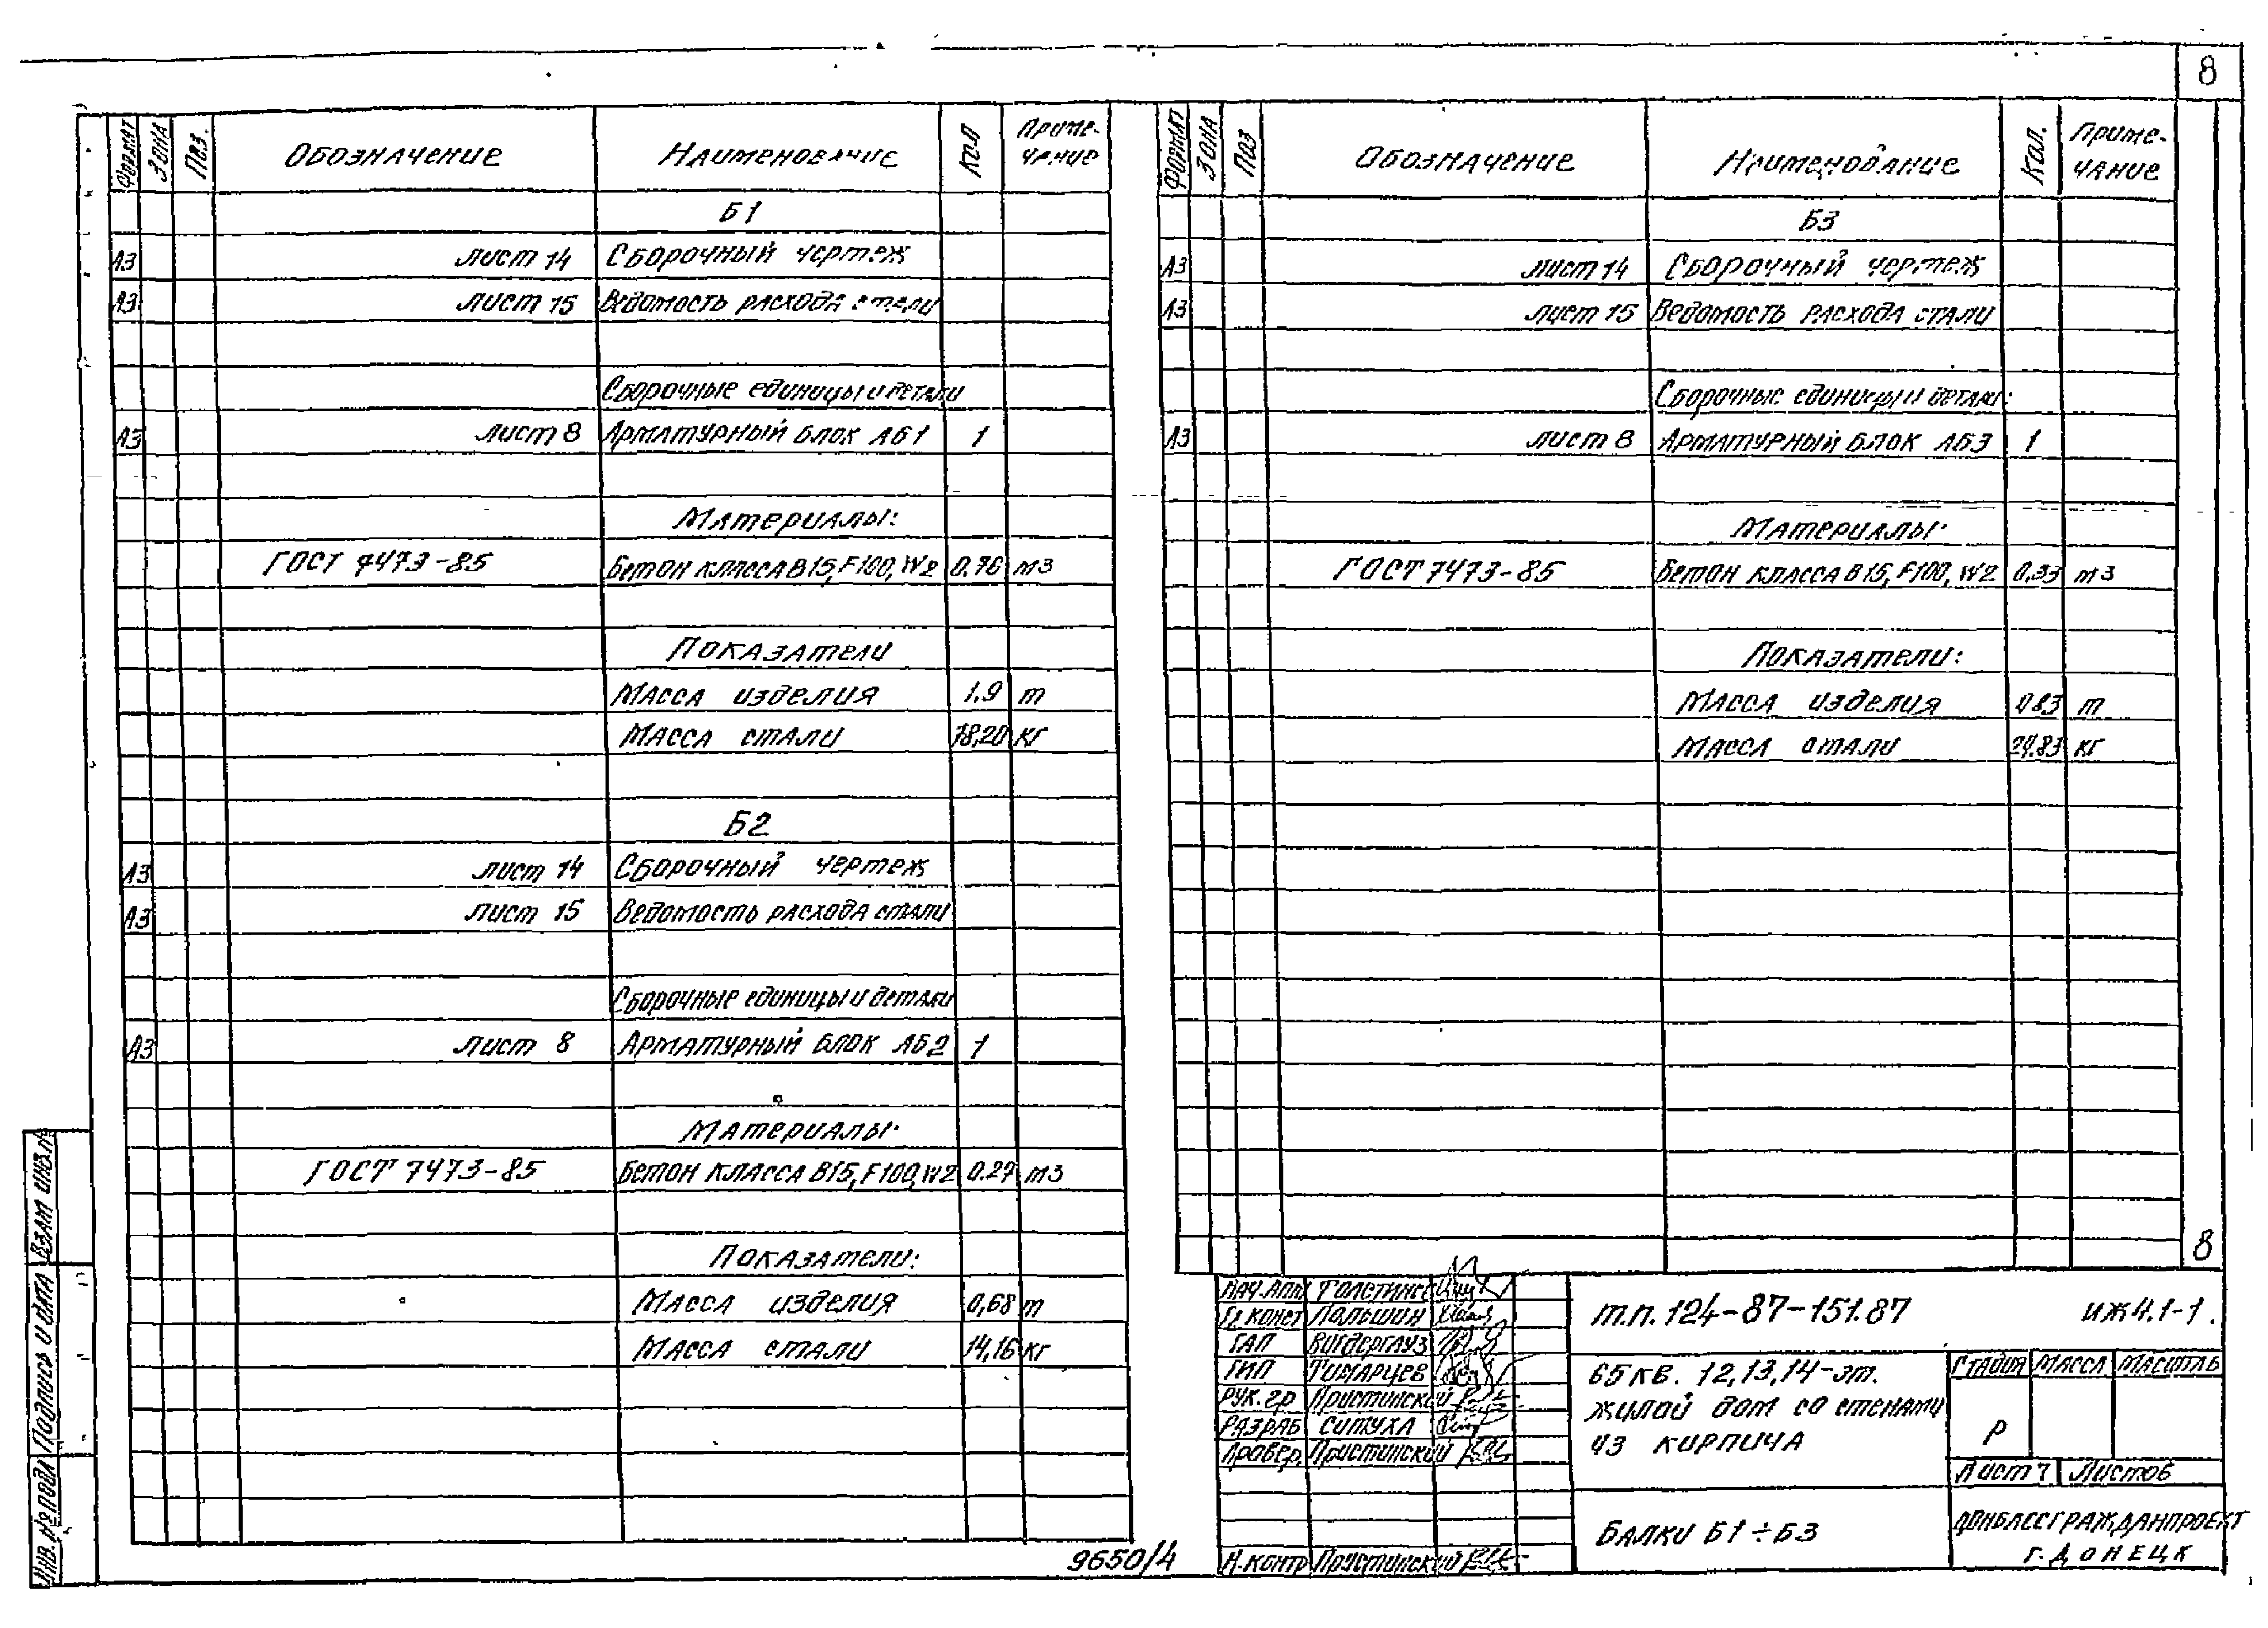 8
Формат Зона Поз. Обозначение Наименование Кол Приме-
чание
Б1
А3 лист 14 Сборочный чертеж
А3 лист 15 Ведомость расхода стали
Сборочные единицы и детали
А3 лист 8 Арматурный блок АБ1 1
Материалы:
ГОСТ 7473-85 Бетон класса В15, F100, W2 0.76 м3
Показатели
Масса изделия 1.9 т
Масса стали 78,20 кг
Б2
А3 лист 14 Сборочный чертеж
А3 лист 15 Ведомость расхода стали
Сборочные единицы и детали
А3 лист 8 Арматурный блок АБ2 1
Материалы:
ГОСТ 7473-85 Бетон класса В15, F100, W2 0.27 м3
Показатели:
Масса изделия 0,68 т
Масса стали 14,16 кг
Формат Зона Поз Обозначение Наименование Кол. Приме-
чание
Б3
А3 лист 14 Сборочный чертеж
А3 лист 15 Ведомость расхода стали
Сборочные единицы и детали:
А3 лист 8 Арматурный блок АБ3 1
Материалы:
ГОСТ 7473-85 Бетон класса В15, F100, W2 0,33 м3
Показатели:
Масса изделия 0,83 т
Масса стали 24,83 кг
8
Нач.АПМ Толстинс
Гл.конст Польшин
ГАП Вигдергауз
ГИП Тимарцев
Рук.гр Пристинский
Разраб Ситуха
Провер. Пристинский
Н.контр Пристинский
т.п. 124-87-151.87 ИЖ4.1-1.
65 кв. 12,13,14-эт.
жилой дом со стенами
из кирпича
Стадия Масса Масштаб
Р
Лист 7 Листов
Балки Б1÷Б3
Донбассгражданпроект
г. Донецк
Взам инв.№
Подпись и дата
Инв.№ подл
9650/4